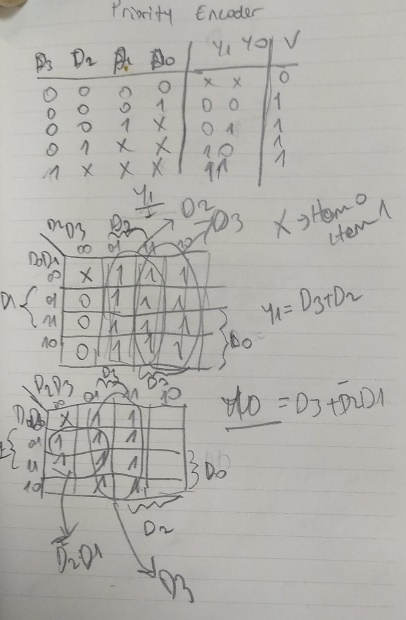 Priority Encoder
D3 D2 D1 D0 Y1 Y0 V
0 0 0 0 X X 0
0 0 0 1 0 0 1
0 0 1 X 0 1 1
0 1 X X 1 0 1
1 X X X 1 1 1
Y1
D2
D3
D2D3 00 01 11 10
D0D1
00 X 1 1 1
01 0 1 1 1
11 0 1 1 1
10 0 1 1 1
D1
D0
Y1 = D3+D2
D2D3 00 01 11 10
00 X 1 1
01 1 1 1
11 1 1 1
10 X 1
D0
D2
Y0 = D3+D̅2D1
D̅2D1
D3